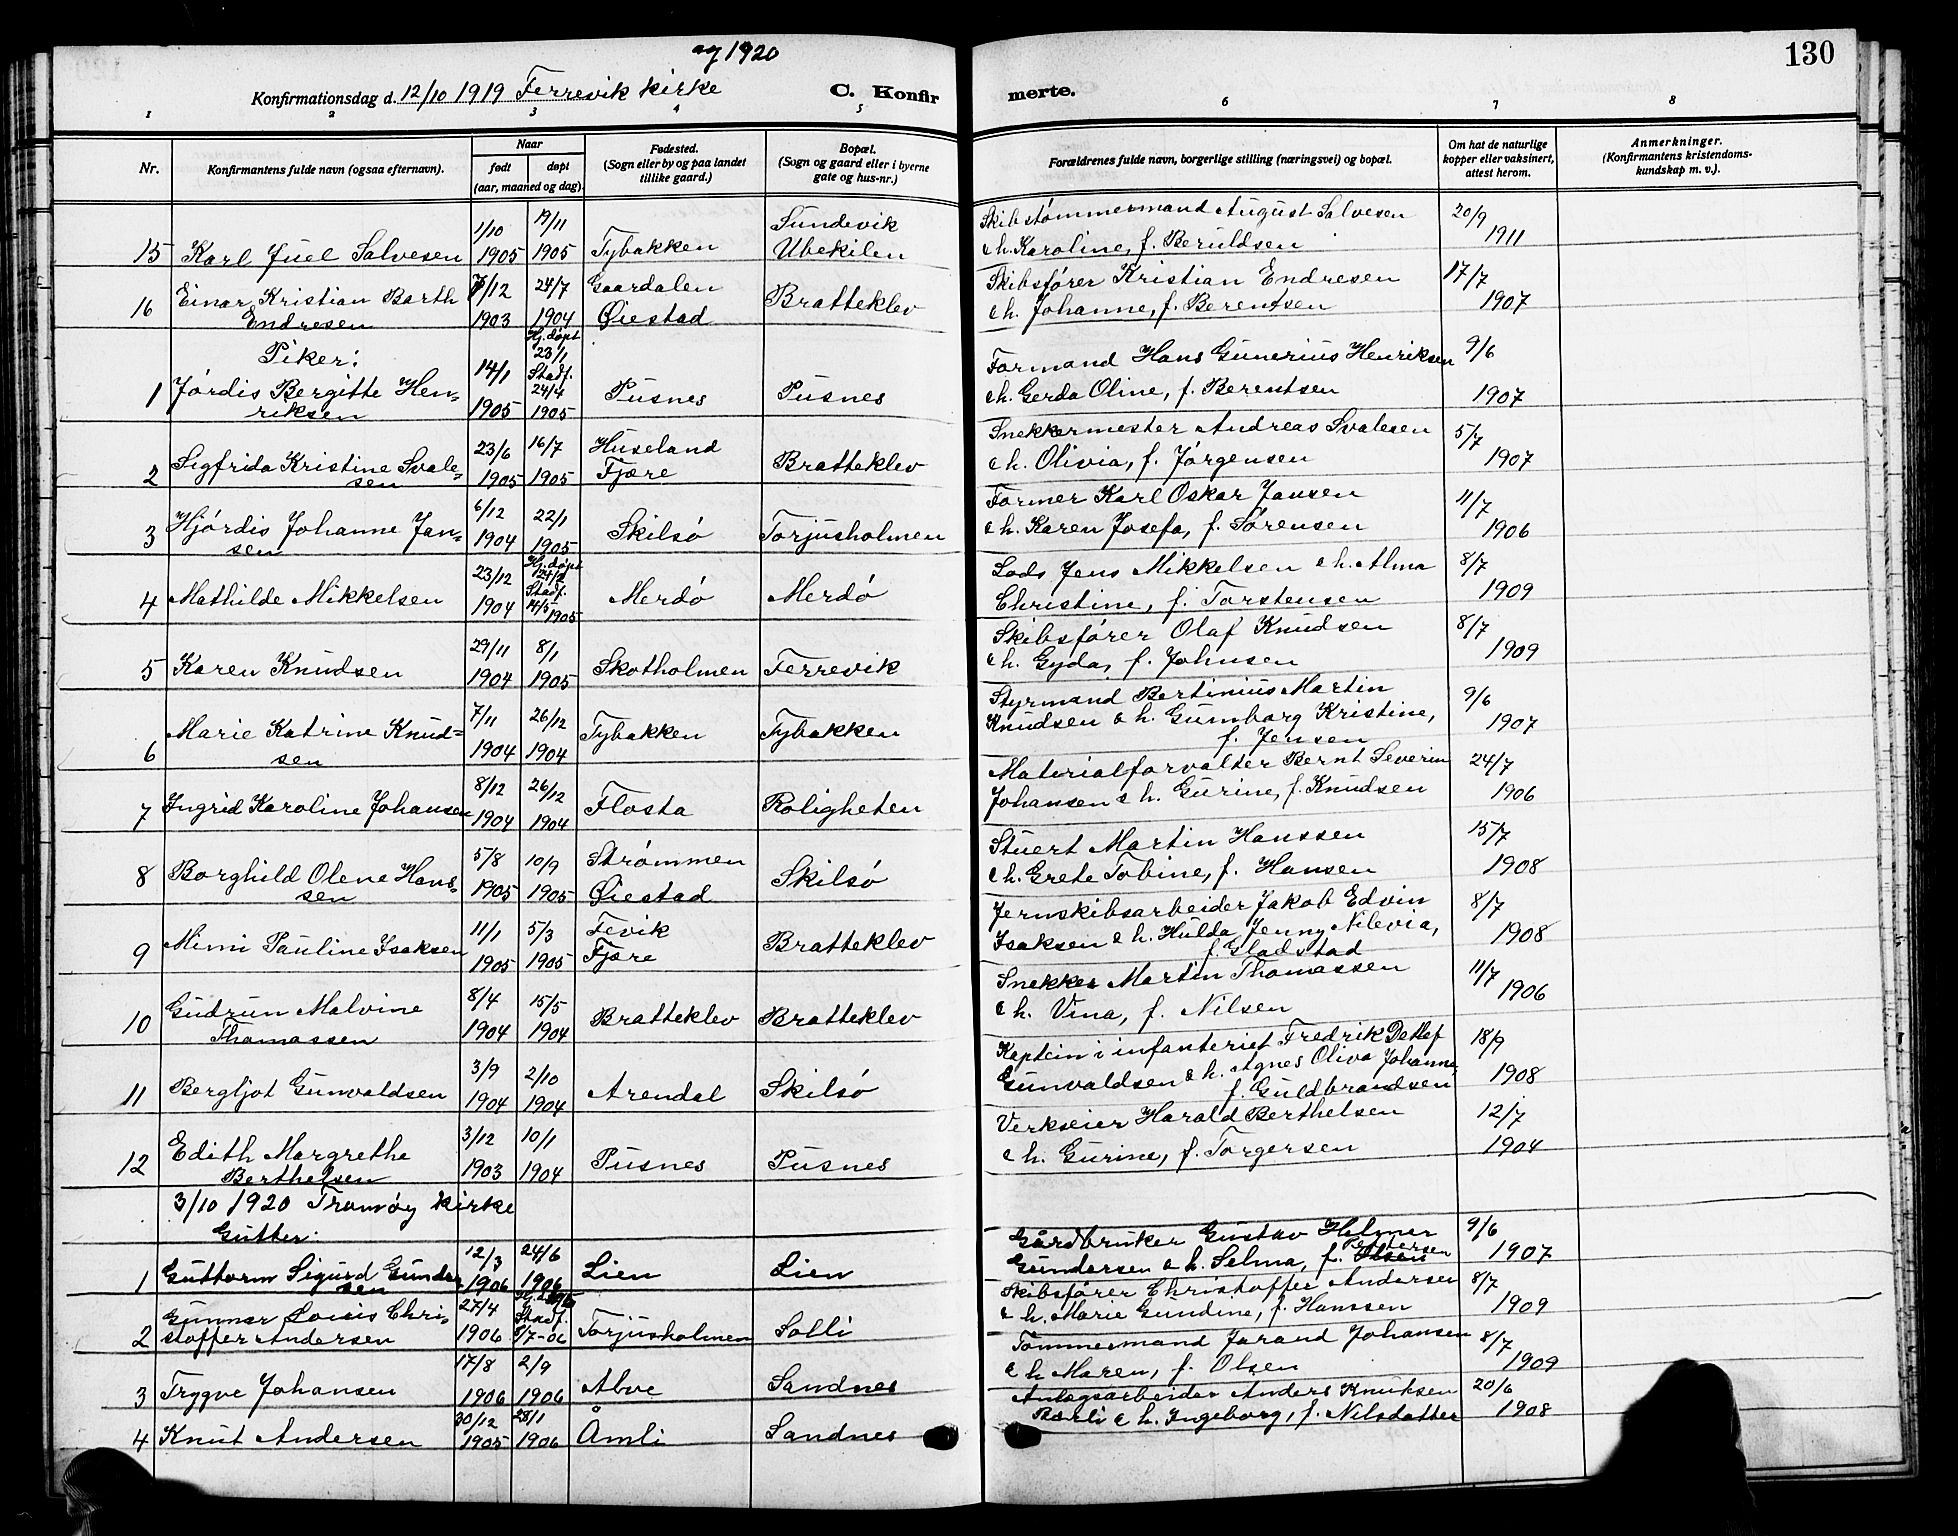 og 1920
130
Konfirmationsdag d. 12/10 1919 Færrevik kirke C. Konfirmerte.
1 2 3 4 5 6 7 8
Nr. | Konfirmantens fulde navn (ogsaa efternavn). | Naar født døpt (aar, maaned og dag). | Fødested. (Sogn eller by og paa landet tillike gaard.) | Bopæl. (Sogn og gaard eller i byerne gate og hus-nr.) | Forældrenes fulde navn, borgerlige stilling (næringsvei) og bopæl. | Om hat de naturlige kopper eller vaksinert, attest herom. | Anmerkninger. (Konfirmantens kristendomskundskap m. v.).
15 | Karl Juel Salvesen | 1/10 1905 | 19/11 1905 | Tybakken | Sundevik Ubekilen | Skibstømmermand August Salvesen & h. Karoline, f. Beruldsen | 20/9 1911
16 | Einar Kristian Barth Endresen | 7/12 1903 | 24/7 1904 | Gaardalen Øiestad | Bratteklev | Skibsfører Kristian Endresen & h. Johanne, f. Berentsen | 17/7 1907
Piker:
1 | Jórdis Bergitte Henriksen | 14/1 1905 | Hj. døpt 23/1 Stadf. 24/4 1905 | Pusnes | Pusnes | Formand Hans Gunerius Henriksen & h. Gerda Oline, f. Berentsen | 9/6 1907
2 | Sigfrida Kristine Svalesen | 23/6 1905 | 16/7 1905 | Huseland Fjære | Bratteklev | Snekkermester Andreas Svalesen & h. Olivia, f. Jørgensen | 5/7 1907
3 | Hjórdis Johanne Jansen | 6/12 1904 | 22/1 1905 | Skilsó | Torjusholmen | Former Karl Oskar Jansen & h. Karen Josefa, f. Sørensen | 11/7 1906
4 | Mathilde Mikkelsen | 23/12 1904 | Hj. døpt Stadf. 14/5 1905 | Merdó | Merdó | Lods Jens Mikkelsen & h. Alma Christine, f. Torstensen | 8/7 1909
5 | Karen Knudsen | 29/11 1904 | 8/1 1905 | Skotholmen | Færrevik | Skibsfører Olaf Knudsen & h. Gyda, f. Johnsen | 8/7 1909
6 | Marie Katrine Knudsen | 7/11 1904 | 26/12 1904 | Tybakken | Tybakken | Styrmand Bertinius Martin Knudsen & h. Gumborg Kristine, f. Jensen | 9/6 1907
7 | Ingrid Karoline Johansen | 8/12 1904 | 26/12 1904 | Flosta | Roligheten | Materialforvalter Bernt Severin Johansen & h. Gurine, f. Knudsen | 24/7 1906
8 | Borghild Olene Hanssen | 5/8 1905 | 10/9 1905 | Strømmen Øiestad | Skilsó | Stuert Martin Hanssen & h. Grete Tobine, f. Hansen | 15/7 1908
9 | Mimi Pauline Isaksen | 11/1 1905 | 5/3 1905 | Fevik Fjære | Bratteklev | Jernskibsarbeider Jakob Edvin Isaksen & h. Hulda Jenny Nilevia, f. Gladstad | 8/7 1908
10 | Gudrun Malvine Thomassen | 8/4 1904 | 15/5 1904 | Bratteklev | Bratteklev | Snekker Martin Thomassen & h. Vina, f. Nilsen | 11/7 1906
11 | Bergljot Gunvaldsen | 3/9 1904 | 2/10 1904 | Arendal | Skilsó | Kaptein i infanteriet Fredrik Detlef Gunvaldsen & h. Agnes Oliva Johanne f. Guldbrandsen | 18/9 1908
12 | Edith Margrethe Berthelsen | 3/12 1903 | 10/1 1904 | Pusnes | Pusnes | Verkseier Harald Berthelsen & h. Gurine, f. Torgersen | 12/7 1904
3/10 1920 Tromøy kirke
Gutter:
1 | Guttorm Sigurd Gundersen | 12/3 1906 | 24/6 1906 | Lien | Lien | Gårdbruker Gustav Helmer Gundersen & h. Selma, f. Pettersen | 9/6 1907
2 | Gunnar Louis Christoffer Andersen | 27/4 1906 | Stadf. 8/7-06 | Torjusholmen | Solli | Skibsfører Christoffer Andersen & h. Marie Gundine, f. Hanssen | 8/7 1909
3 | Trygve Johansen | 17/8 1906 | 2/9 1906 | Alve | Sandnes | Tømmermand Jørand Johansen & h. Maren, f. Olsen | 8/7 1909
4 | Knut Andersen | 30/12 1905 | 28/1 1906 | Åmli | Sandnes | Anlegsarbeider Anders Knutsen Barli & h. Ingeborg, f. Nilsdatter | 20/6 1908